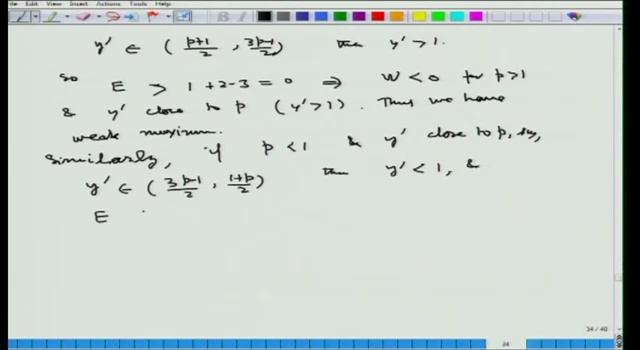 File Edit View Insert Actions Tools Help
y' ∈ ( p+1/2 , 3p-1/2 ) then y' > 1.
So E > 1 + 2 - 3 = 0 ⇒ W < 0 for p > 1
& y' close to p ( y' > 1 ) . Thus we have
weak maximum.
Similarly, if p < 1 & y' close to p, say,
y' ∈ ( 3p-1/2 , 1+p/2 ) then y' < 1, &
E
34 / 40
34